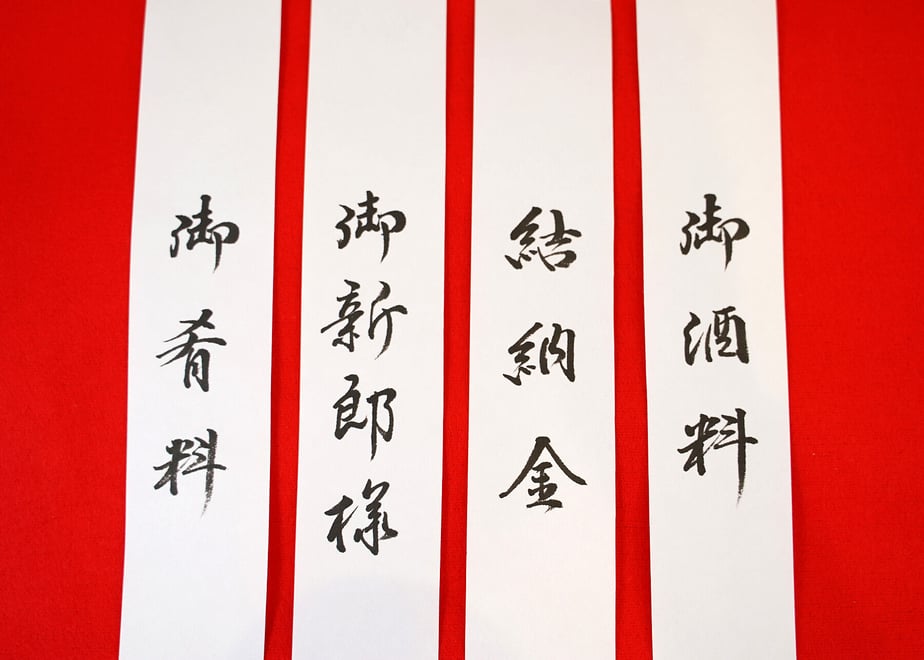 御酒料
結納金
御新郎様
御肴料